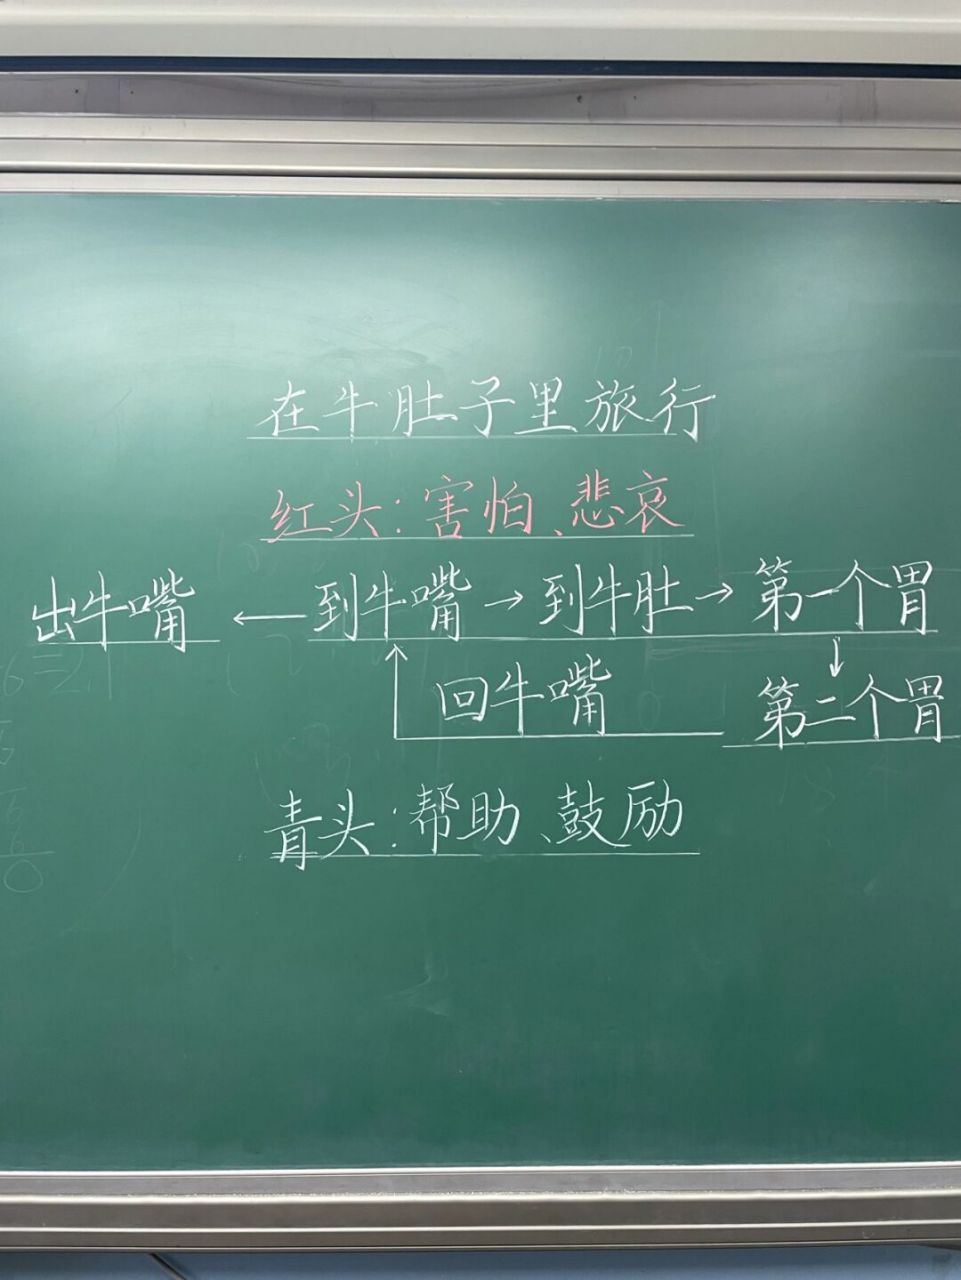 在牛肚子里旅行
红头:害怕、悲哀
出牛嘴 ← 到牛嘴 → 到牛肚 → 第一个胃
↓
↑ 回牛嘴 第二个胃
青头:帮助、鼓励